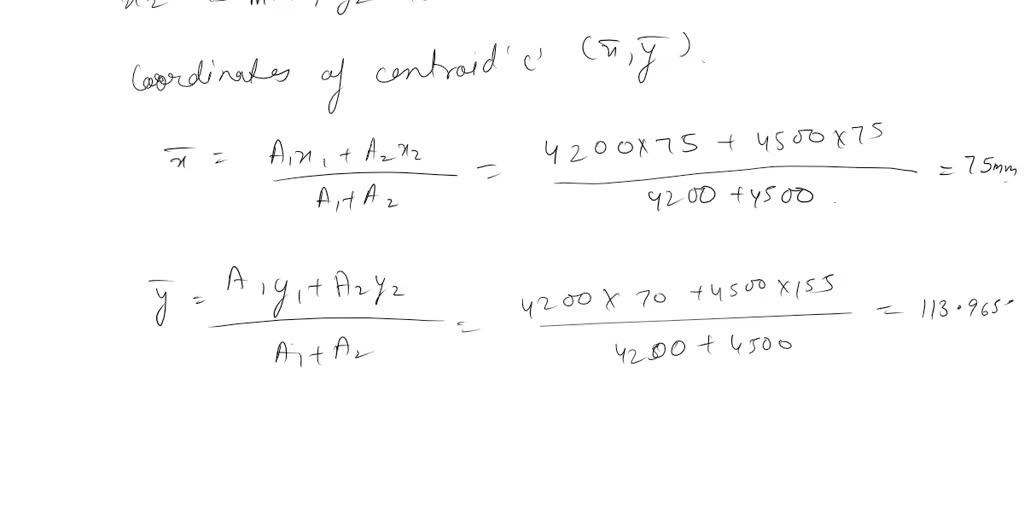 Coordinates of centroid 'c' (x̄, ȳ).
x̄ = A₁x₁ + A₂x₂ / A₁ + A₂ = 4200×75 + 4500×75 / 4200 + 4500 = 75mm
ȳ = A₁y₁ + A₂y₂ / A₁ + A₂ = 4200 × 70 + 4500 × 155 / 4200 + 4500 = 113.965